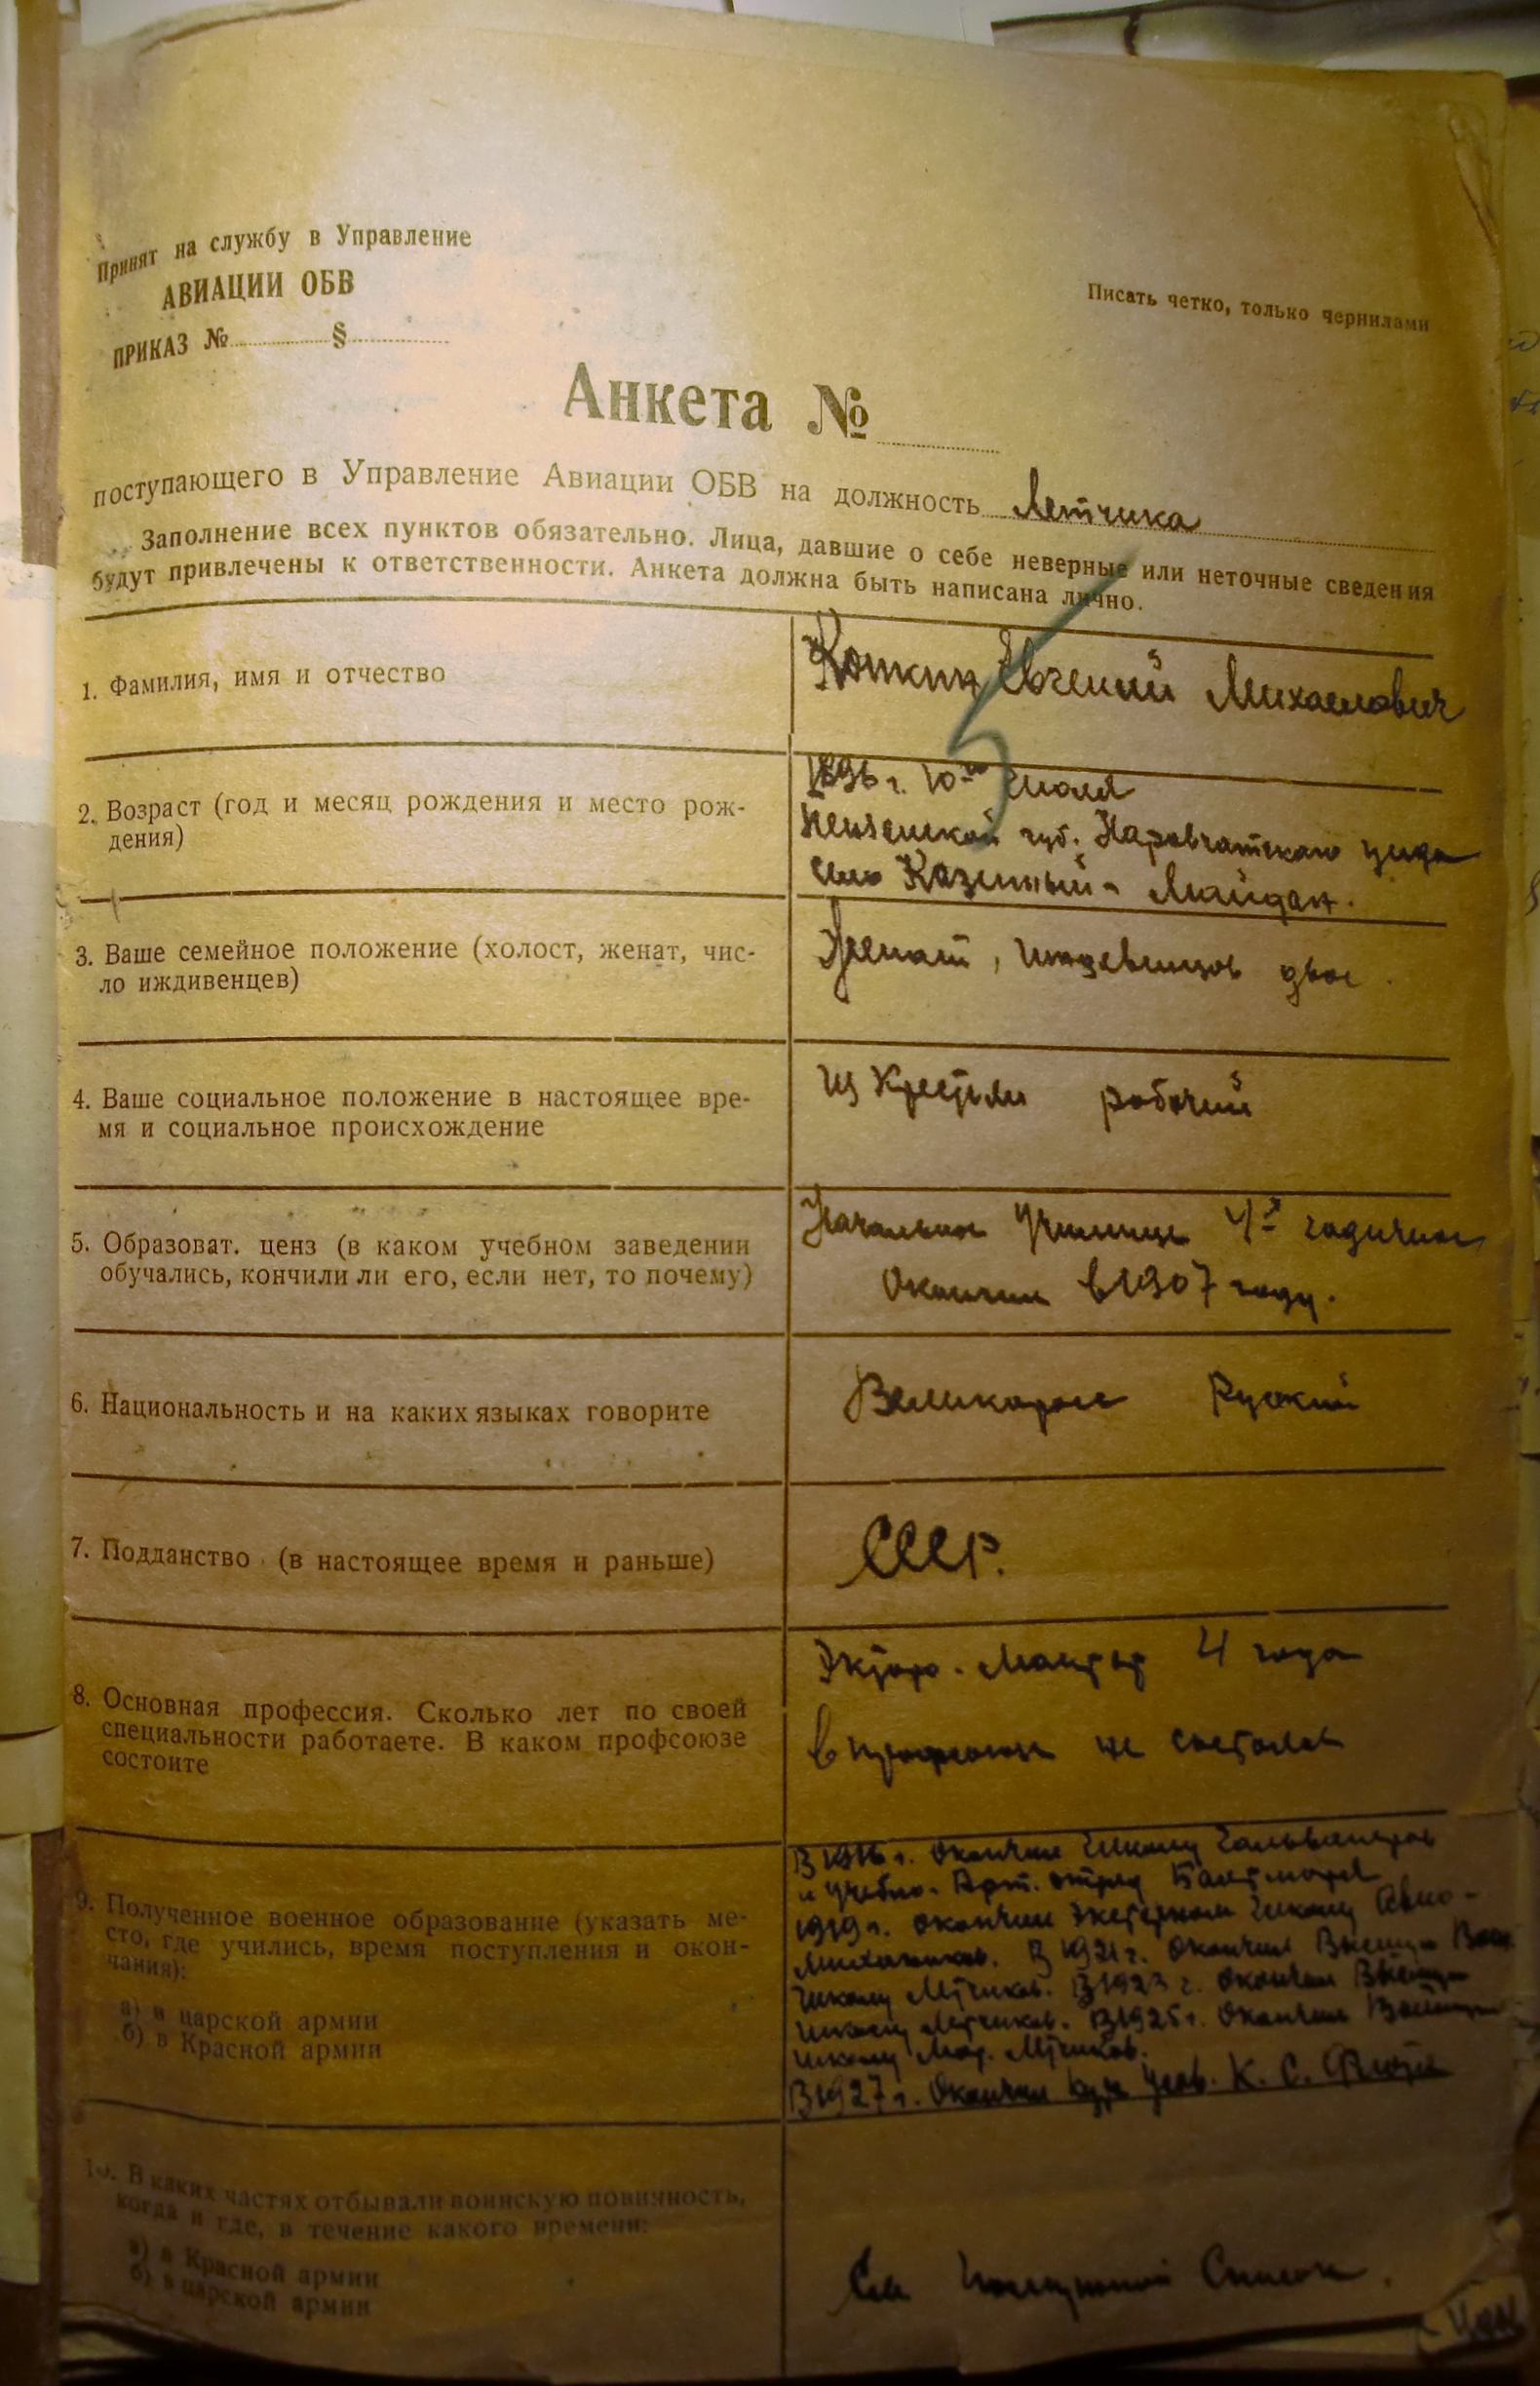 Принят на службу в Управление
АВИАЦИИ ОБВ
ПРИКАЗ № § 
Писать четко, только чернилами
Анкета №
поступающего в Управление Авиации ОБВ на должность Летчика
Заполнение всех пунктов обязательно. Лица, давшие о себе неверные или неточные сведения
будут привлечены к ответственности. Анкета должна быть написана лично.
1. Фамилия, имя и отчество
Кошкин Евгений Михаилович
2. Возраст (год и месяц рождения и место рож-
дения)
1896 г. 10го Июля
Пензенской губ. Наровчатского уезда
село Казенный-Майдан.
3. Ваше семейное положение (холост, женат, чис-
ло иждивенцев)
Женат, Иждевенцов двое.
4. Ваше социальное положение в настоящее вре-
мя и социальное происхождение
Из Крестьян рабочий
5. Образоват. ценз (в каком учебном заведении
обучались, кончили ли его, если нет, то почему)
Начальное Училище 4х годичное
Окончил в 1907 году.
6. Национальность и на каких языках говорите
Великоросс Русский
7. Подданство (в настоящее время и раньше)
СССР.
8. Основная профессия. Сколько лет по своей
специальности работаете. В каком профсоюзе
состоите
4 года
в профсоюзе не состоял
9. Полученное военное образование (указать ме-
сто, где учились, время поступления и окон-
чания):
а) в царской армии
б) в Красной армии
В 1916 г. Окончил Школу Гальванеров
и Учебно. Арт. отряд Балтморя
1919 г. окончил Экстерном Школу Авио-
Механиков. В 1921 г. Окончил Высшую
Школу Летчиков. В 1923 г. окончил Высшую
школу Летчиков. В 1925 г. Окончил
школу Мор. Летчиков.
В 1927 г. Окончил Усов. К. С. Флота
10. В каких частях отбывали воинскую повинность,
когда и где, в течение какого времени:
а) в Красной армии
б) в царской армии
См Послужной Список.